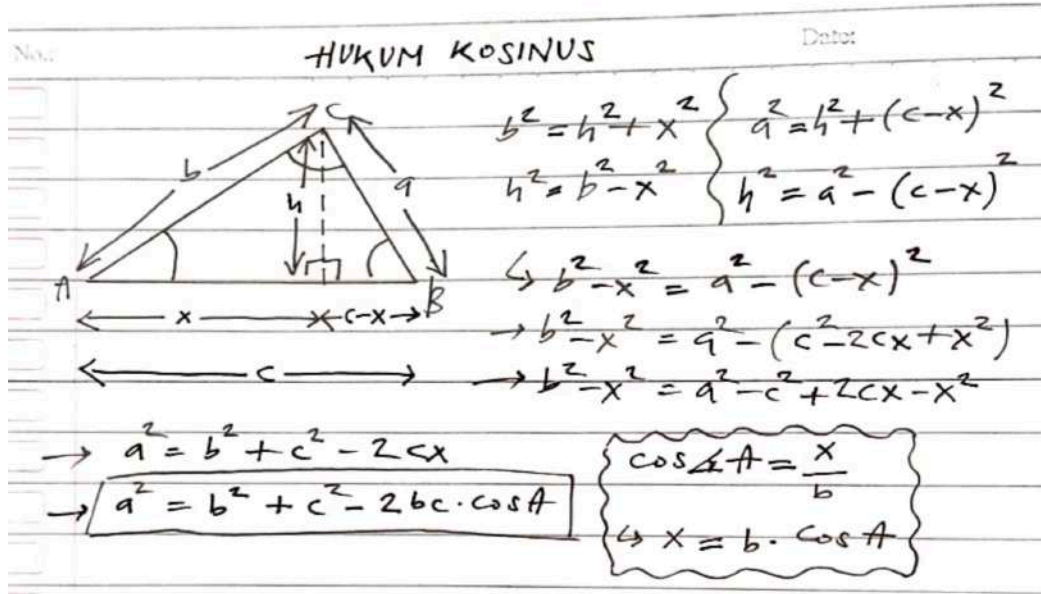 No.:
HUKUM KOSINUS
Date:
C
b
h
a
A
B
x
c-x
c
b² = h² + x²
h² = b² - x²
a² = h² + (c-x)²
h² = a² - (c-x)²
↳ b² - x² = a² - (c-x)²
→ b² - x² = a² - (c² - 2cx + x²)
→ b² - x² = a² - c² + 2cx - x²
→ a² = b² + c² - 2cx
→ a² = b² + c² - 2bc · cos A
cos ∡A = x/b
↳ x = b · cos A